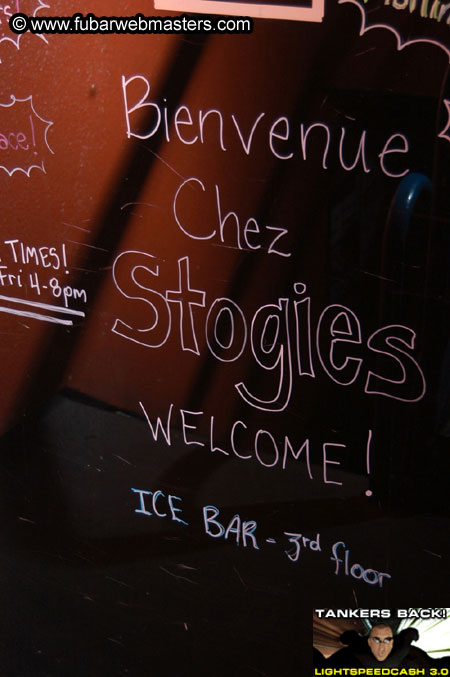 © www.fubarwebmasters.com
Bienvenue
Chez
Stogies
WELCOME!
ICE BAR - 3rd floor
TIMES!
Fri 4-8pm
TANKERS BACK!
LIGHTSPEEDCASH 3.0